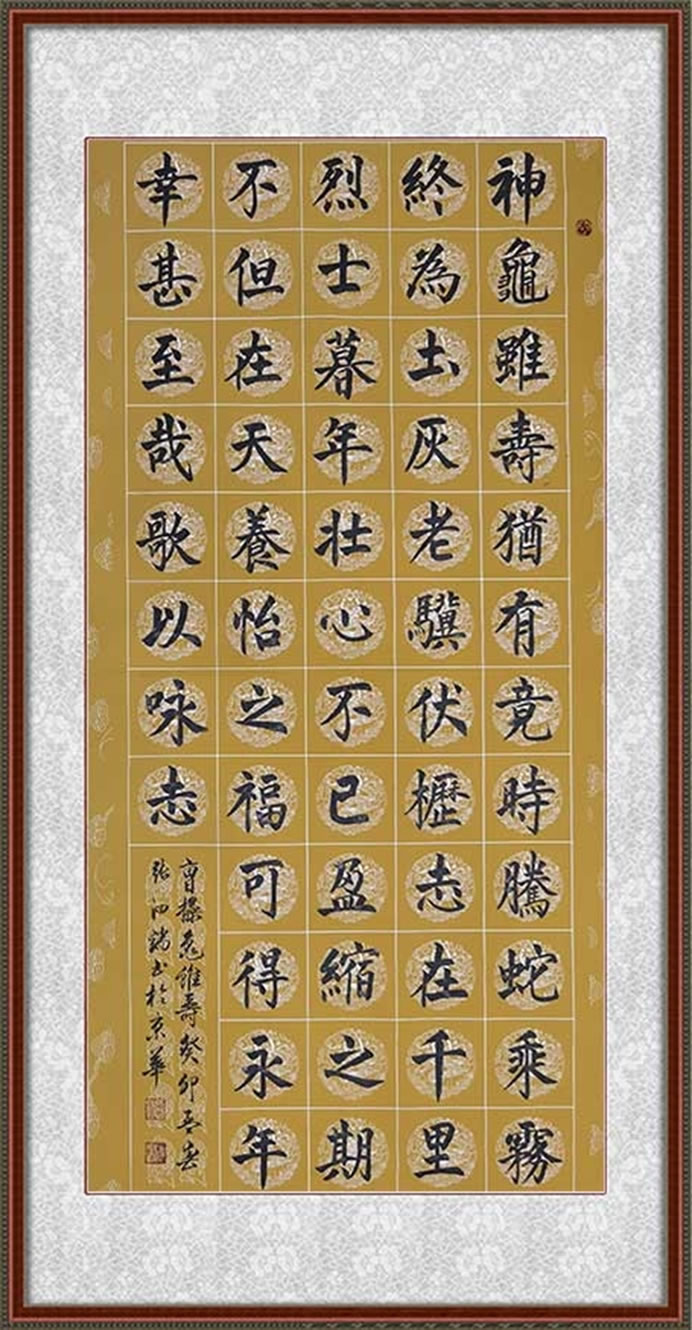 神龜雖壽猶有竟時騰蛇乘霧
終為土灰老驥伏櫪志在千里
烈士暮年壯心不已盈縮之期
不但在天養怡之福可得永年
幸甚至哉歌以咏志
曹操龜雖壽癸卯春
張泗书於京華